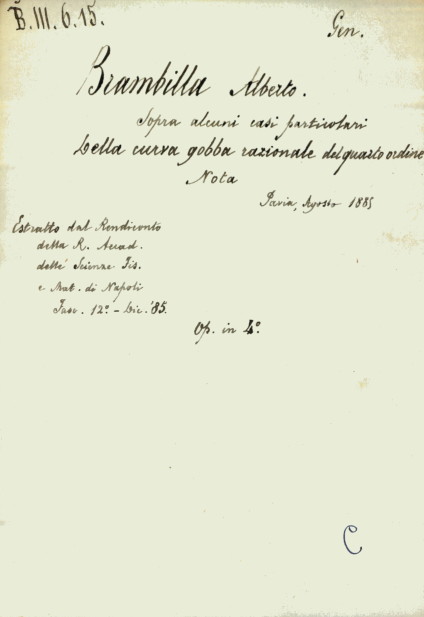 B.III.6.15.
Gen.
Brambilla Alberto.
Sopra alcuni casi particolari
della curva gobba razionale del quarto ordine
Nota
Pavia, Agosto 1885
Estratto dal Rendiconto
della R. Accad.
delle Scienze Fis.
e Mat. di Napoli
Fasc. 12º - Dic. '85.
Op. in 4º.
C